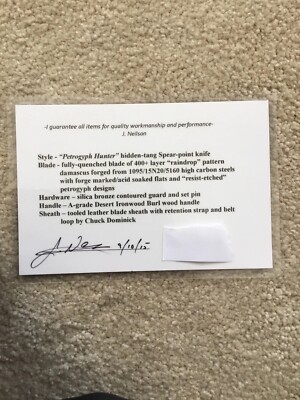 -I guarantee all items for quality workmanship and performance-
J. Neilson
Style - "Petrogyph Hunter" hidden-tang Spear-point knife
Blade - fully-quenched blade of 400+ layer "raindrop" pattern
damascus forged from 1095/15N20/5160 high carbon steels
with forge marked/acid soaked flats and "resist-etched"
petrogyph designs
Hardware – silica bronze contoured guard and set pin
Handle – A-grade Desert Ironwood Burl wood handle
Sheath – tooled leather blade sheath with retention strap and belt
loop by Chuck Dominick